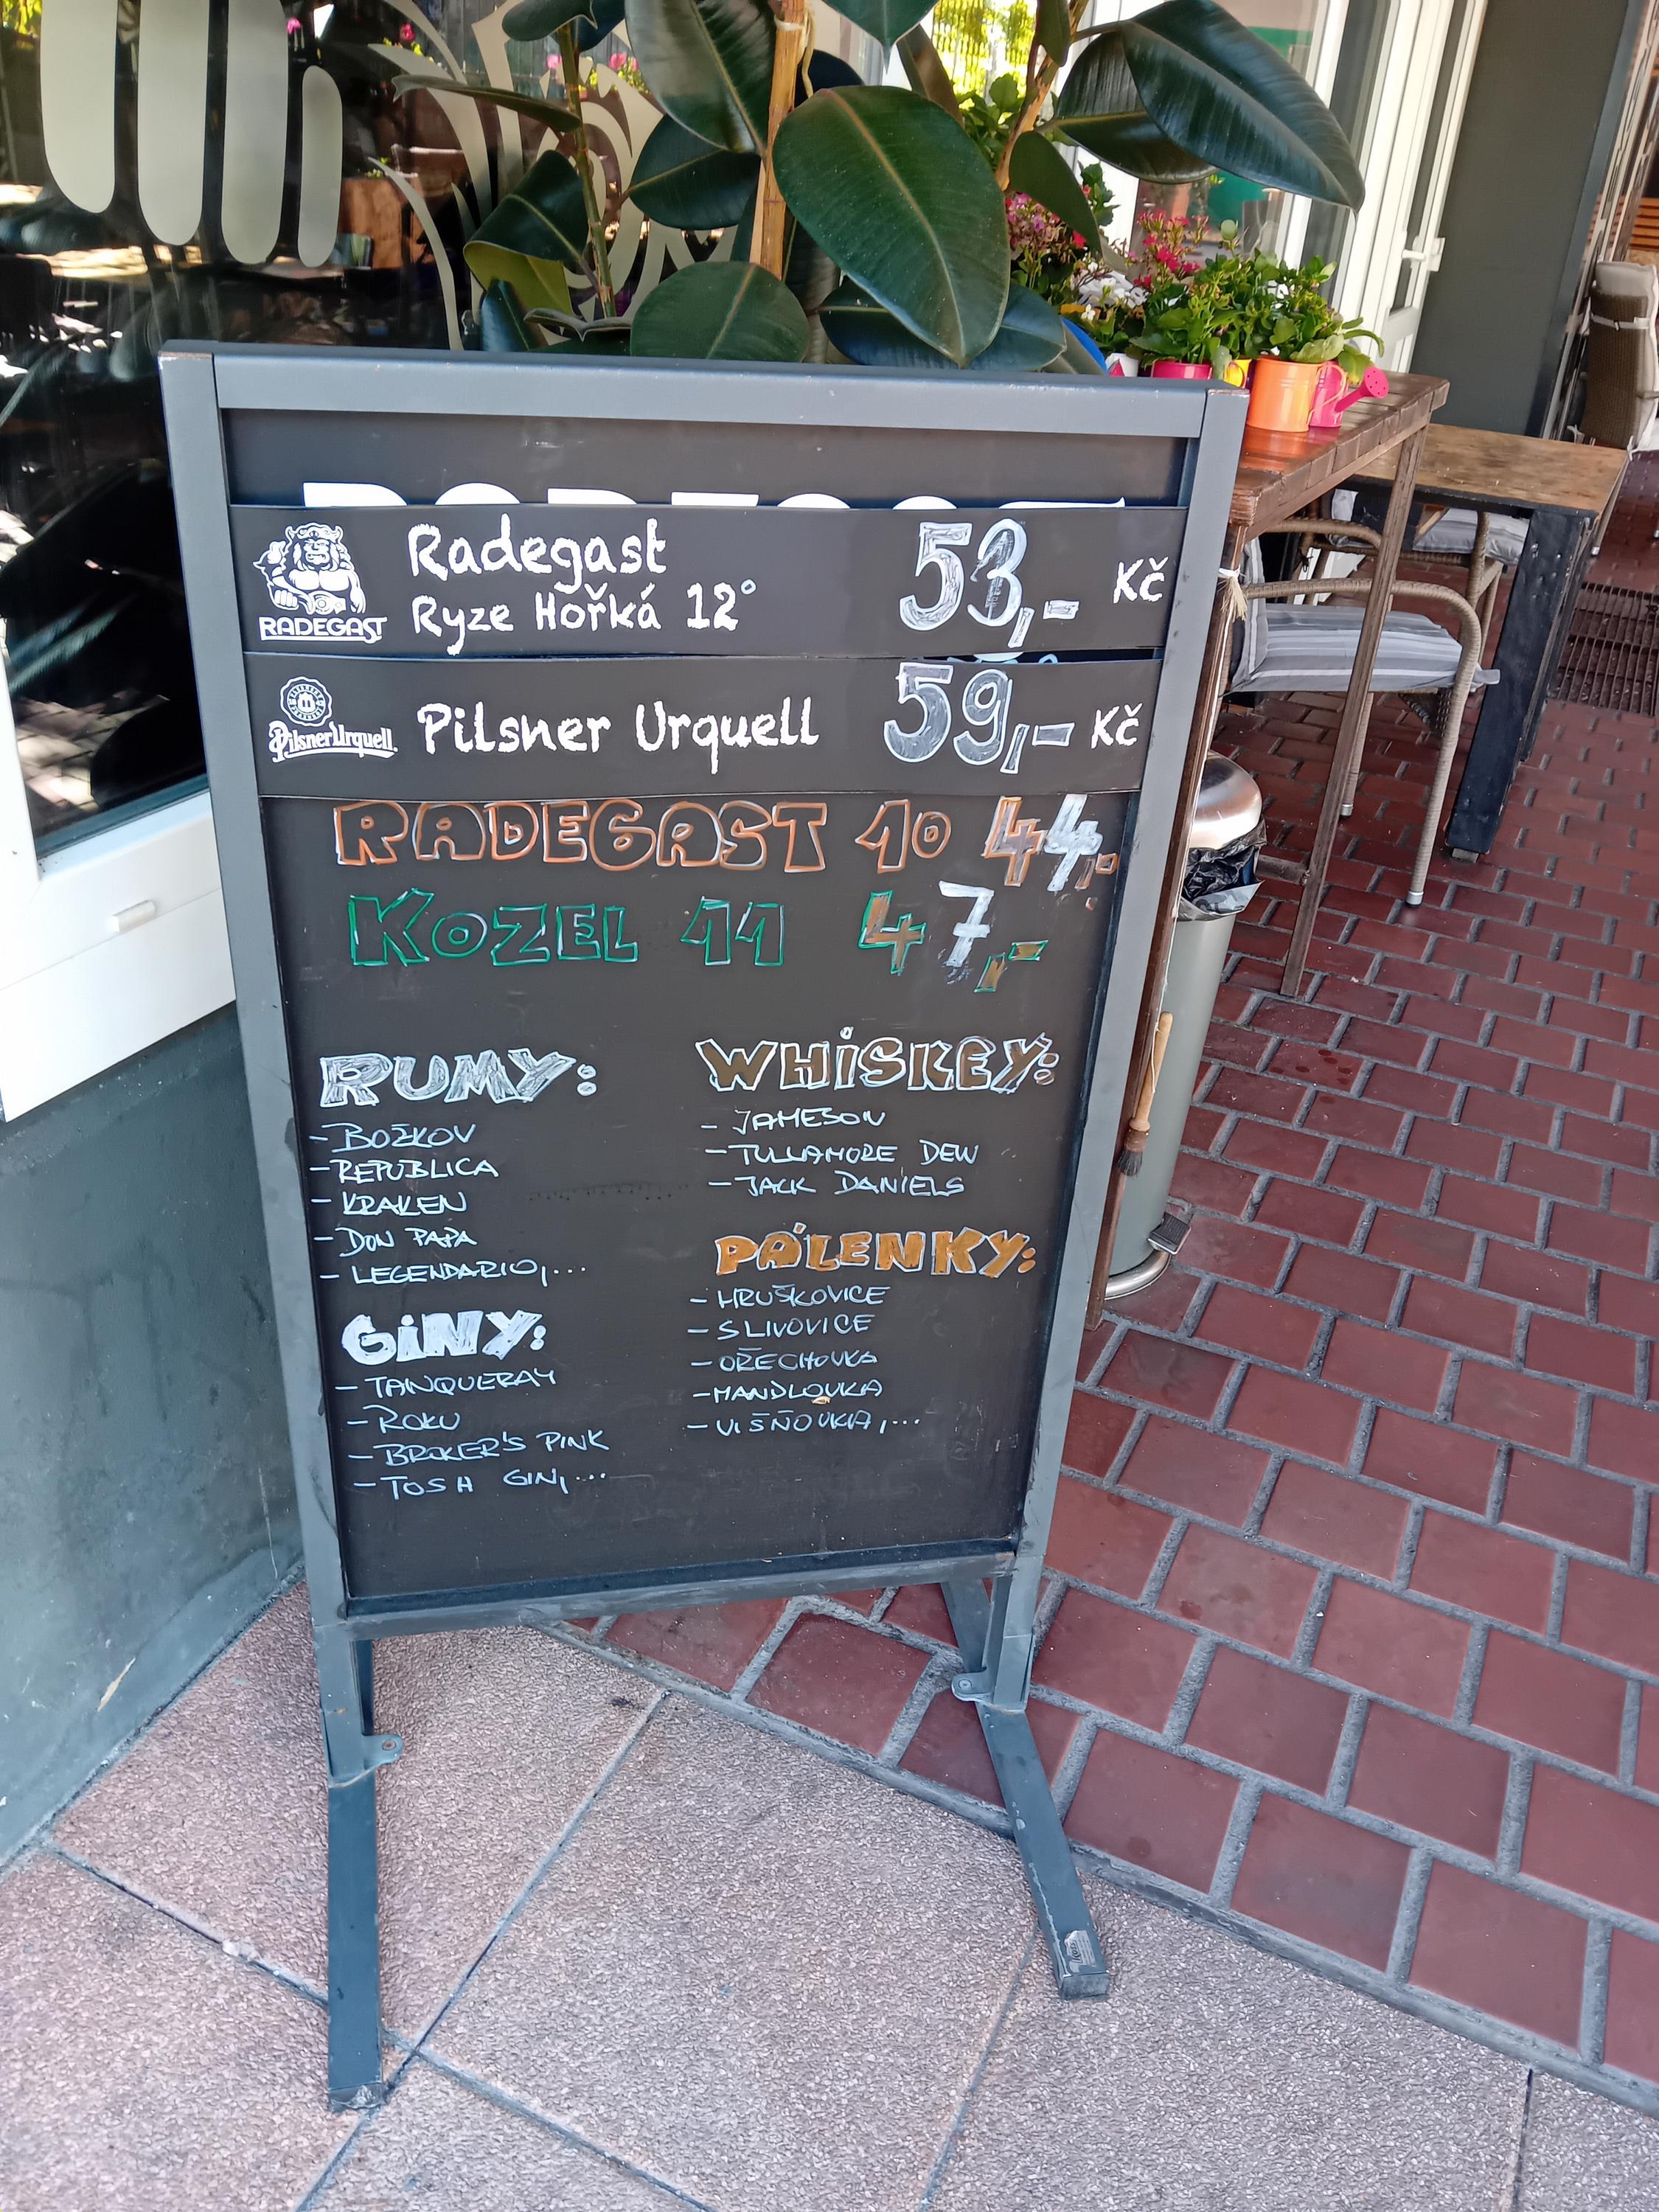 RADEGAST
Radegast
Ryze Hořká 12°
53,- Kč
Pilsner Urquell
Pilsner Urquell 59,- Kč
RADEGAST 10 44,-
KOZEL 11 47,-
RUMY:
- BOŽKOV
- REPUBLICA
- KRAKEN
- DON PAPA
- LEGENDARIO,...
GINY:
- TANQUERAY
- ROKU
- BROKER'S PINK
- TOSH GIN,...
WHISKEY:
- JAMESON
- TULLAMORE DEW
- JACK DANIELS
PÁLENKY:
- HRUŠKOVICE
- SLIVOVICE
- OŘECHOVKA
- MANDLOVKA
- VIŠŇOVKA,...